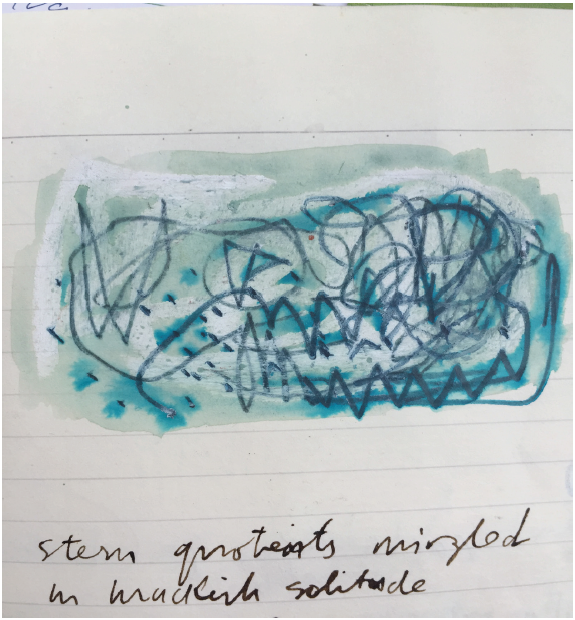 stern quotients mingled
in brackish solitude